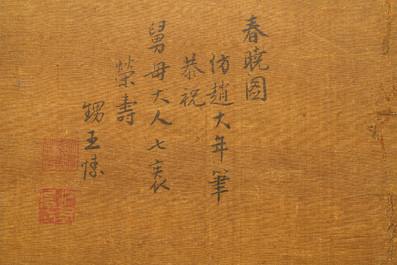 春曉图
仿趙大年筆
恭祝
舅母大人七袠
榮壽
甥王愫